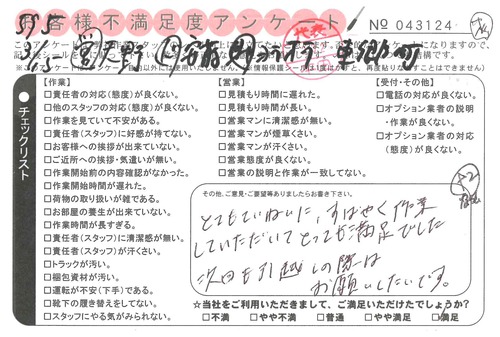 お客様不満足度アンケート
No 043124
【作業】
□責任者の対応(態度)が良くない。
□他のスタッフの対応(態度)が良くない。
□作業を見ていて不安がある。
□責任者(スタッフ)に好感が持てない。
□お客様への挨拶が出来ていない。
□ご近所への挨拶・気遣いが無い。
□作業開始前の内容確認がなかった。
□作業開始時間が遅れた。
□荷物の取り扱いが雑である。
□お部屋の養生が出来ていない。
□作業時間が長すぎる。
□責任者(スタッフ)に清潔感が無い。
□責任者(スタッフ)が汗くさい。
□トラックが汚い。
□梱包資材が汚い。
□運転が不安(下手)である。
□靴下の履き替えをしてない。
□スタッフにやる気がみられない。
【営業】
□見積もり時間に遅れた。
□見積もり時間が長い。
□営業マンに清潔感が無い。
□営業マンが煙草くさい。
□営業マンが汗くさい。
□営業態度が良くない。
□営業の説明と作業が一致してない。
【受付・その他】
□電話の対応が良くない。
□オプション業者の説明・作業が良くない。
□オプション業者の対応(態度)が良くない。
●チェックリスト
その他、ご意見・ご要望等ありましたらお書き下さい。
とてもていねいに、すばやく作業
していただいてとっても満足でした
次回も引越しの際は
お願いしたいです。
☆当社をご利用いただきまして、ご満足いただけたでしょうか?
□不満 □やや不満 □普通 □やや満足 □満足